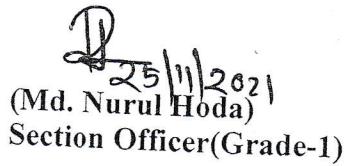 25/11/2021
(Md. Nurul Hoda)
Section Officer(Grade-1)